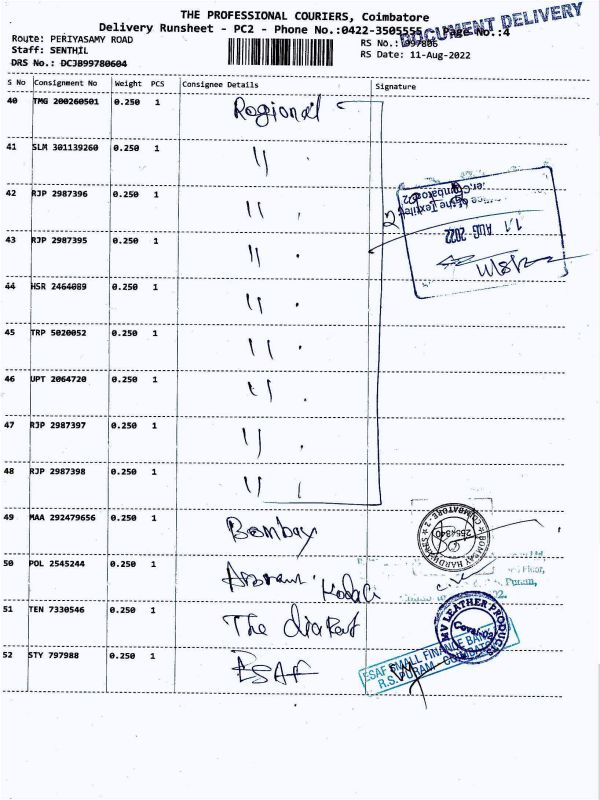 THE PROFESSIONAL COURIERS, Coimbatore
DOCUMENT DELIVERY
Delivery Runsheet - PC2 - Phone No.:0422-3505555 Page No.:4
Route: PERIYASAMY ROAD
RS No.: 997806
Staff: SENTHIL
RS Date: 11-Aug-2022
DRS No.: DCJB99780604
S No Consignment No Weight PCS Consignee Details Signature
40 TMG 200260501 0.250 1 Regional
41 SLM 301139260 0.250 1 "
42 RJP 2987396 0.250 1 "
43 RJP 2987395 0.250 1 "
44 HSR 2464089 0.250 1 "
45 TRP 5020052 0.250 1 "
46 UPT 2064720 0.250 1 "
47 RJP 2987397 0.250 1 "
48 RJP 2987398 0.250 1 "
of the Textile
Coimbatore
11 AUG 2022
49 MAA 292479656 0.250 1 Bombay
BOMBAY HARDWARES
COIMBATORE - 2
50 POL 2545244 0.250 1
Floor,
Puram,
51 TEN 7330546 0.250 1 The
MV LEATHER PRODUCTS
52 STY 797988 0.250 1 ESAF
ESAF SMALL FINANCE BANK
R.S. PURAM, COIMBATORE